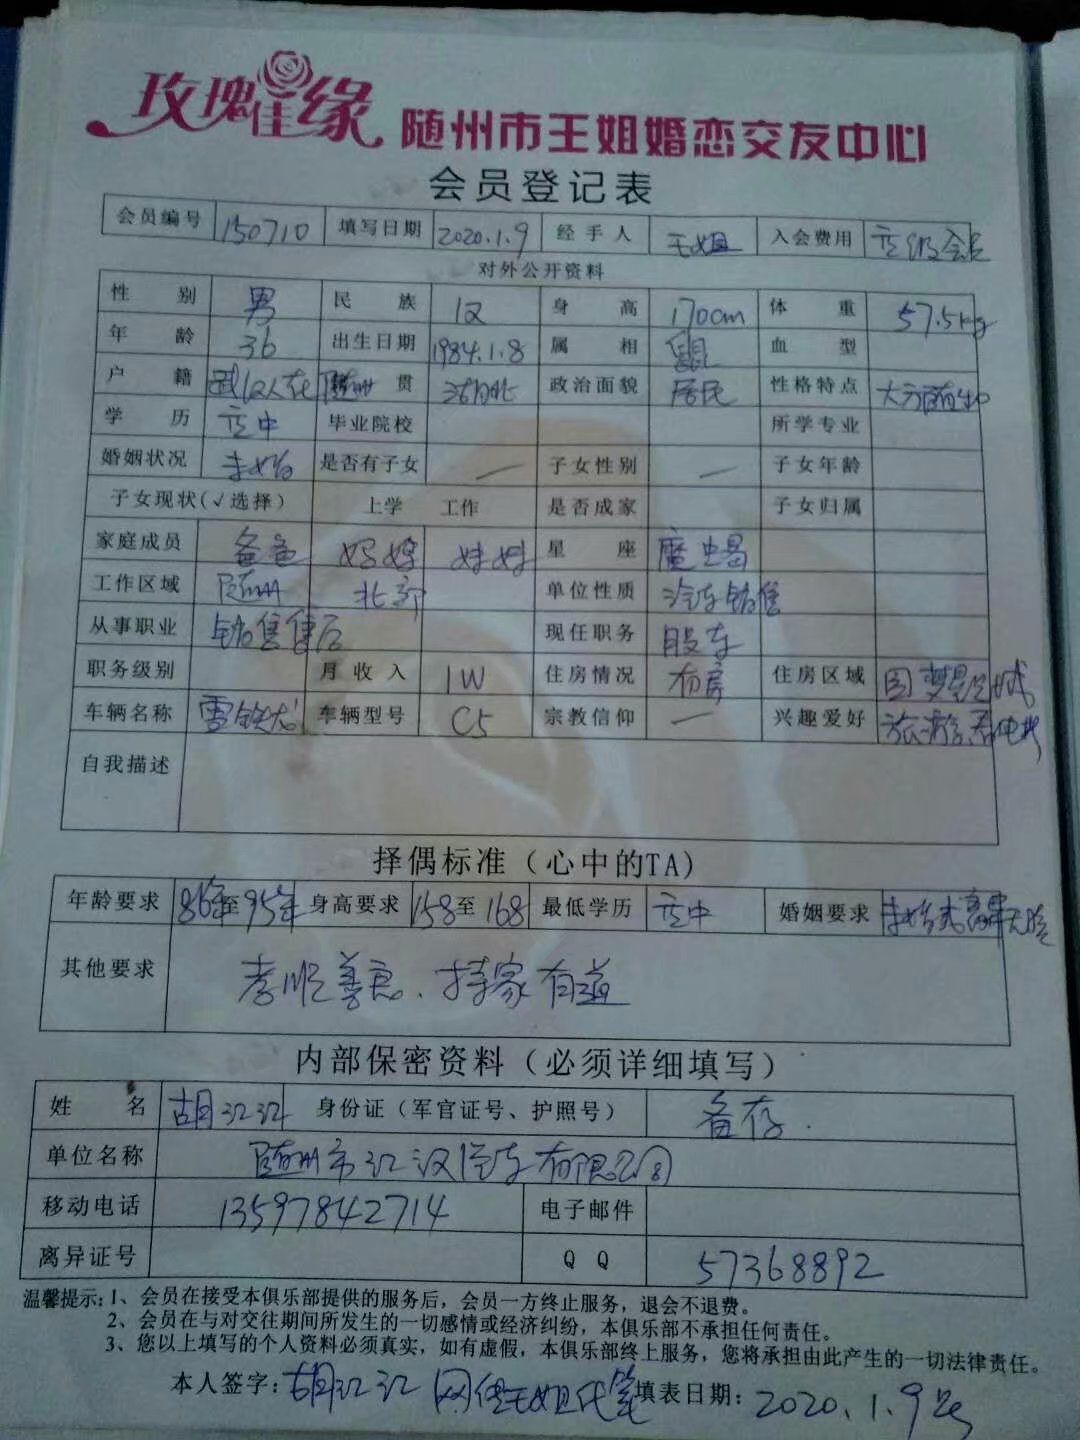 玫瑰缘 随州市王姐婚恋交友中心
会员登记表
会员编号 150710 填写日期 2020.1.9 经手人 王姐 入会费用 高级会员
对外公开资料
性别 男 民族 汉 身高 170cm 体重 57.5kg
年龄 36 出生日期 1984.1.8 属相 鼠 血型
户籍 武汉人在随州 贯 湖北 政治面貌 居民 性格特点 大方
学历 高中 毕业院校 所学专业
婚姻状况 未婚 是否有子女 — 子女性别 — 子女年龄
子女现状(√选择) 上学 工作 是否成家 子女归属
家庭成员 爸爸 妈妈 妹妹 星座 魔蝎
工作区域 随州 北郊 单位性质 汽车销售
从事职业 销售售后 现任职务 股东
职务级别 月收入 1W 住房情况 有房 住房区域
车辆名称 雪铁龙 车辆型号 C5 宗教信仰 — 兴趣爱好 旅游 看电影
自我描述
择偶标准（心中的TA）
年龄要求 86年至95年 身高要求 158至168 最低学历 高中 婚姻要求 未婚或离异无孩
其他要求 孝顺善良、持家有道
内部保密资料（必须详细填写）
姓名 胡江江 身份证（军官证号、护照号） 备存.
单位名称 随州市江汉汽车有限公司
移动电话 13597842714 电子邮件
离异证号 QQ 57368892
温馨提示: 1、会员在接受本俱乐部提供的服务后，会员一方终止服务，退会不退费。
2、会员在与对交往期间所发生的一切感情或经济纠纷，本俱乐部不承担任何责任。
3、您以上填写的个人资料必须真实，如有虚假，本俱乐部终上服务，您将承担由此产生的一切法律责任。
本人签字: 胡江江 网传王姐代笔 填表日期: 2020.1.9号